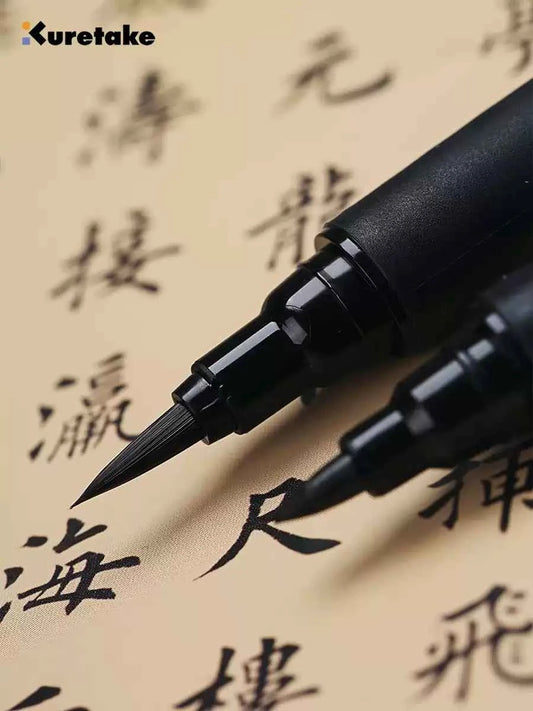 Kuretake
飛
元龍
尺樓
濤接瀛海